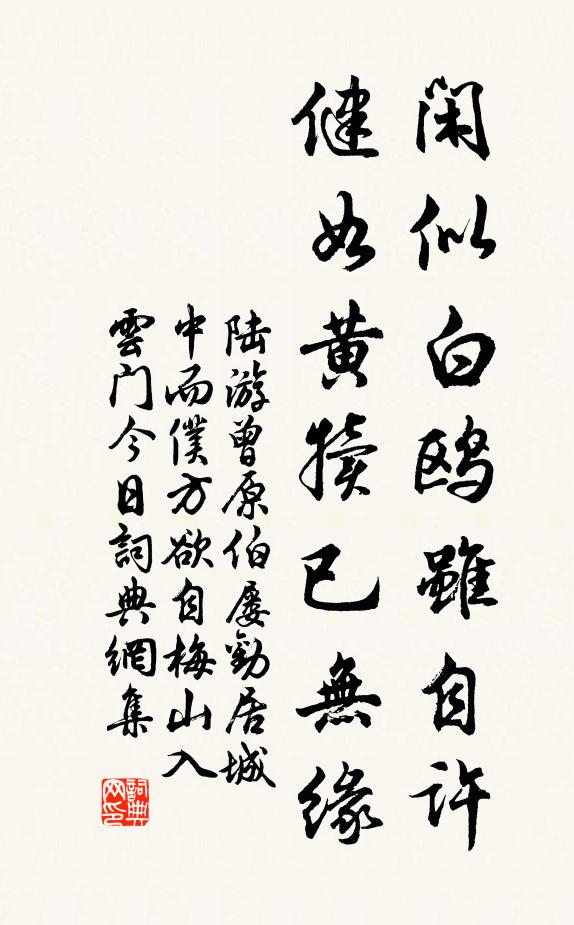 閑似白鷗雖自許
健如黃犢已無緣
陆游曾原伯屡勸居城
中而僕方欲自梅山入
雲门今日詞典網集
詞典网印